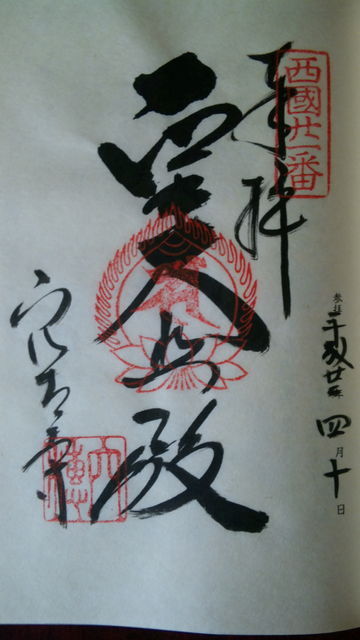 西國廿一番
参拝 平成廿
四月十日
奉拝
聖大悲殿
穴太寺